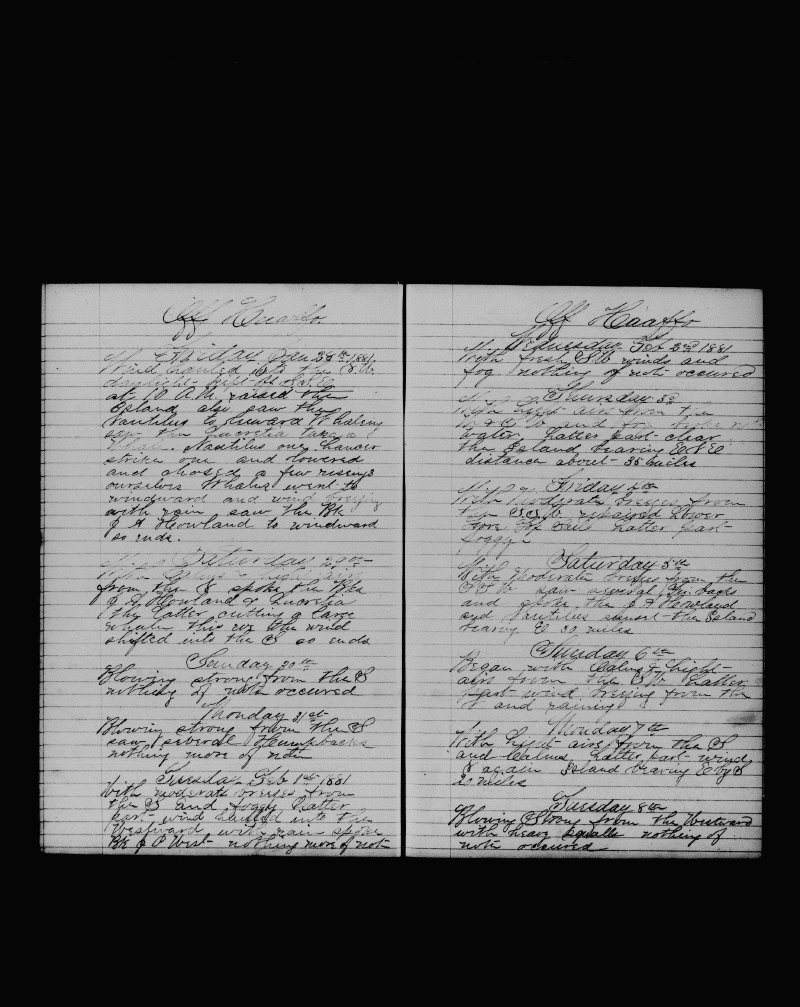 Off Huaffo
Friday Jan 28th 1881
Wind hauled into the S.W.
daylight
at 10 A.M. raised the
Island also saw the
Nautilus to leward Whaling
saw the Lucretia take a
Whale. Nautilus one chance
strike one and lowered
and chased a few risings
ourselves Whales went to
windward and wind breezing
with rain saw the Bk
J A Howland to windward
so ends.
Saturday 29th
from the S spoke the Bks
J A Howland & Lucretia
the latter cutting a large
whale this the wind
shifted into the S so ends
Sunday 30th
Blowing strong from the S
nothing of note occured
Monday 31st
Blowing strong from the S
saw several Humpbacks
nothing more of note
Tuesday Feb 1st 1881
With moderate breezes from
the S and foggy Latter
part wind hauled into the
Westward with rain spoke
Bk J P West nothing more of note
Off Huaffo
Wednesday Feb 2nd 1881
With fresh SW winds and
fog nothing of note occured
Thursday 3d
With light airs from the
W and fog
water. Latter part clear
the Island bearing ENE
distance about 35 miles
Friday 4th
With Moderate breezes from
the SSW repaired Lower
Fore Top Sail Latter part
foggy
Saturday 5th
With Moderate breezes from the
SW saw several Finbacks
and spoke the J A Howland
and Nautilus sunset the Island
bearing E 30 miles
Sunday 6th
Began with Calms & Light
airs from the SW Latter
part wind breezing from the
and raining
Monday 7th
With Light airs from the S
and Calms Latter part wind
S again Island bearing E by S
20 miles
Tuesday 8th
Blowing Strong from the Westward
with heavy squalls nothing of
note occured